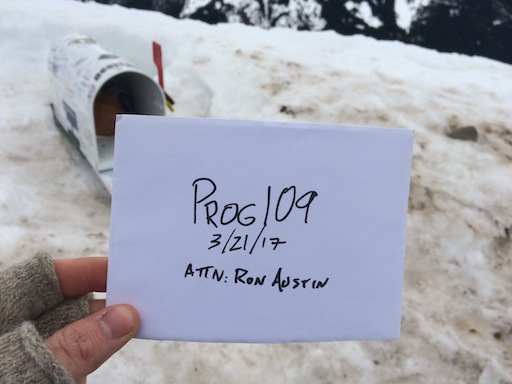 PROG109
3/21/17
ATTN: RON AUSTIN